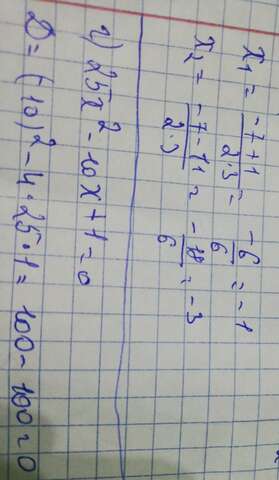 x₁ = (-7+1)/(2·3) = -6/6 = -1
x₂ = (-7-11)/(2·3) = -18/6 = -3
г) 25x² - 10x + 1 = 0
D = (-10)² - 4·25·1 = 100 - 100 = 0